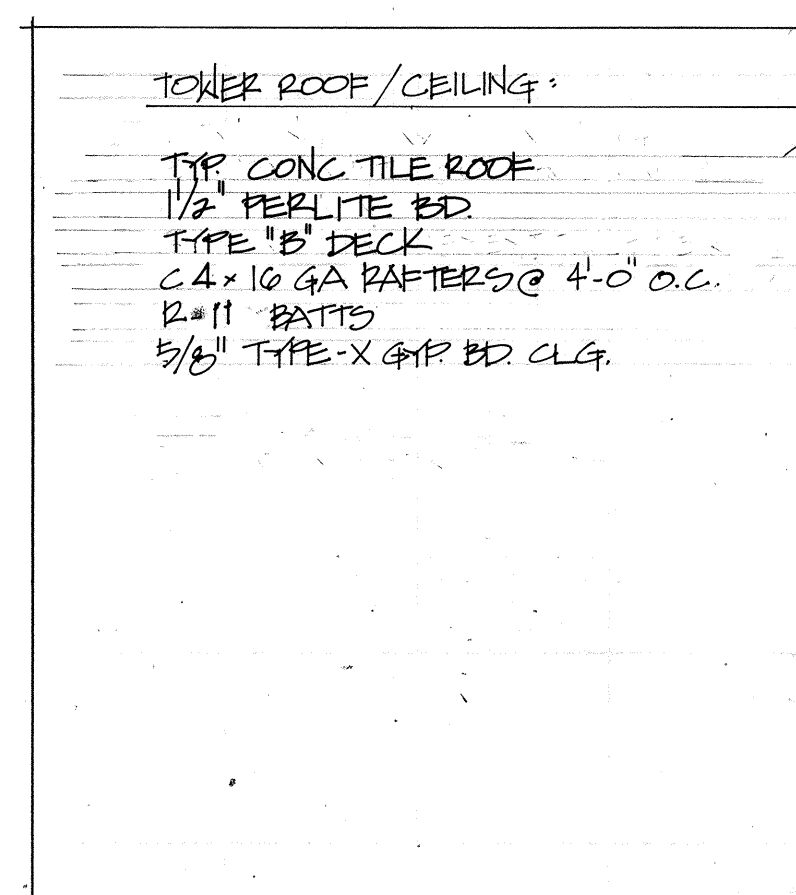 TOWER ROOF/CEILING:
TYP. CONC TILE ROOF
1 1/2" PERLITE BD.
TYPE "B" DECK
C 4 x 16 GA RAFTERS @ 4'-0" O.C.
R-11 BATTS
5/8" TYPE-X GYP. BD. CLG.